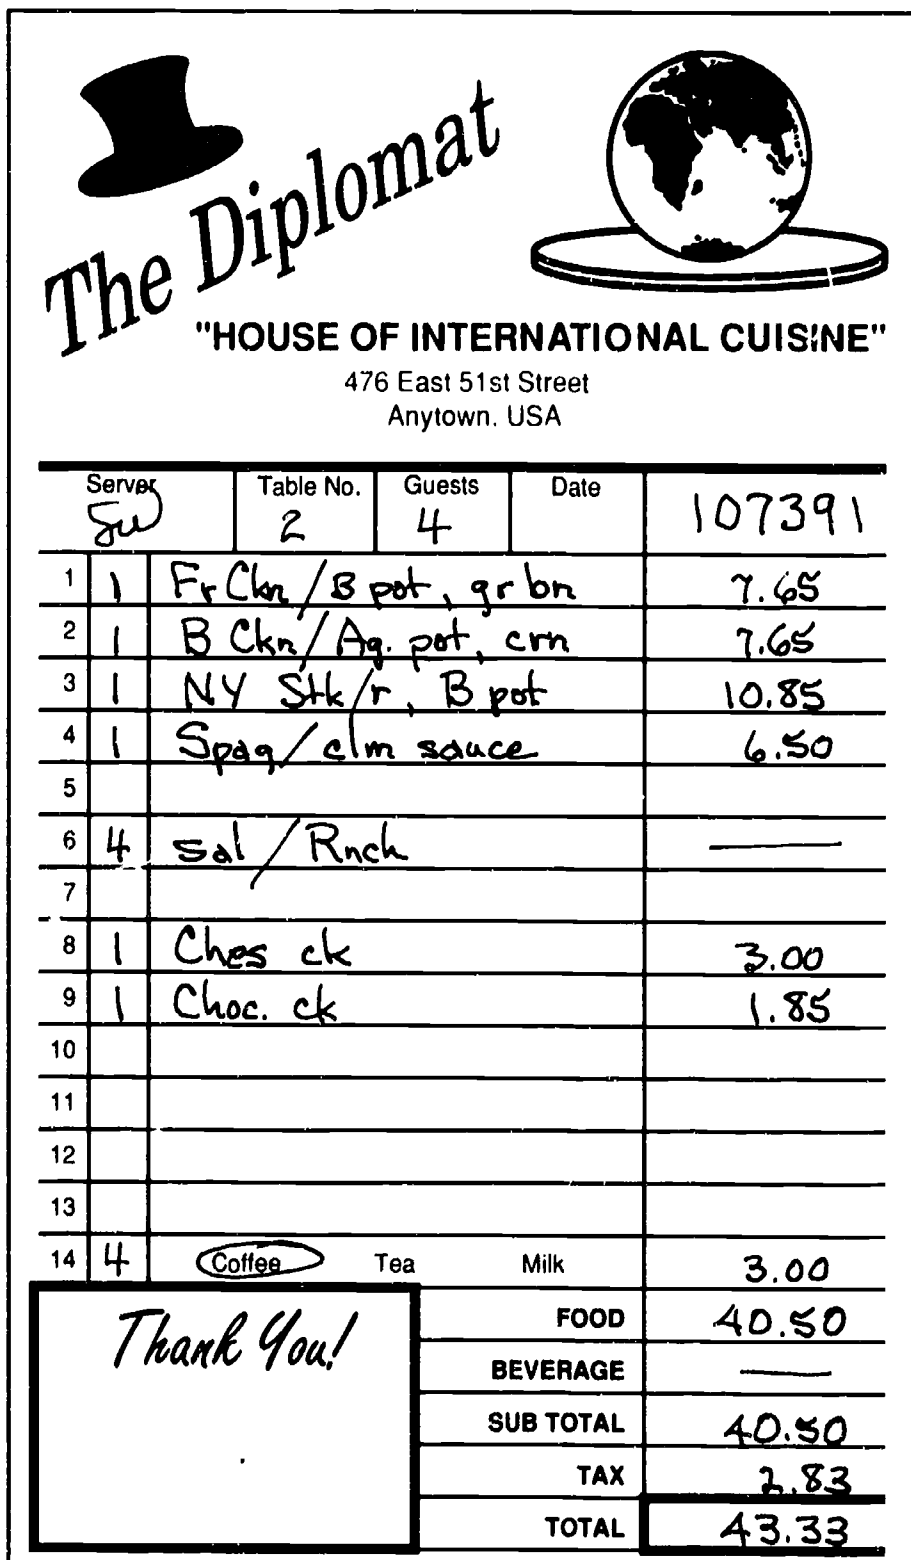 The Diplomat
"HOUSE OF INTERNATIONAL CUISINE"
476 East 51st Street
Anytown, USA
Server Table No. Guests Date 107391
2 4
1 1 Fr Ckn / B pot, gr bn 7.65
2 1 B Ckn / Ag. pot, crn 7.65
3 1 NY Stk / r, B pot 10.85
4 1 Spag / clm sauce 6.50
5
6 4 Sal / Rnch —
7
8 1 Ches ck 3.00
9 1 Choc. ck 1.85
10
11
12
13
14 4 Coffee Tea Milk 3.00
Thank You!
FOOD 40.50
BEVERAGE —
SUB TOTAL 40.50
TAX 2.83
TOTAL 43.33